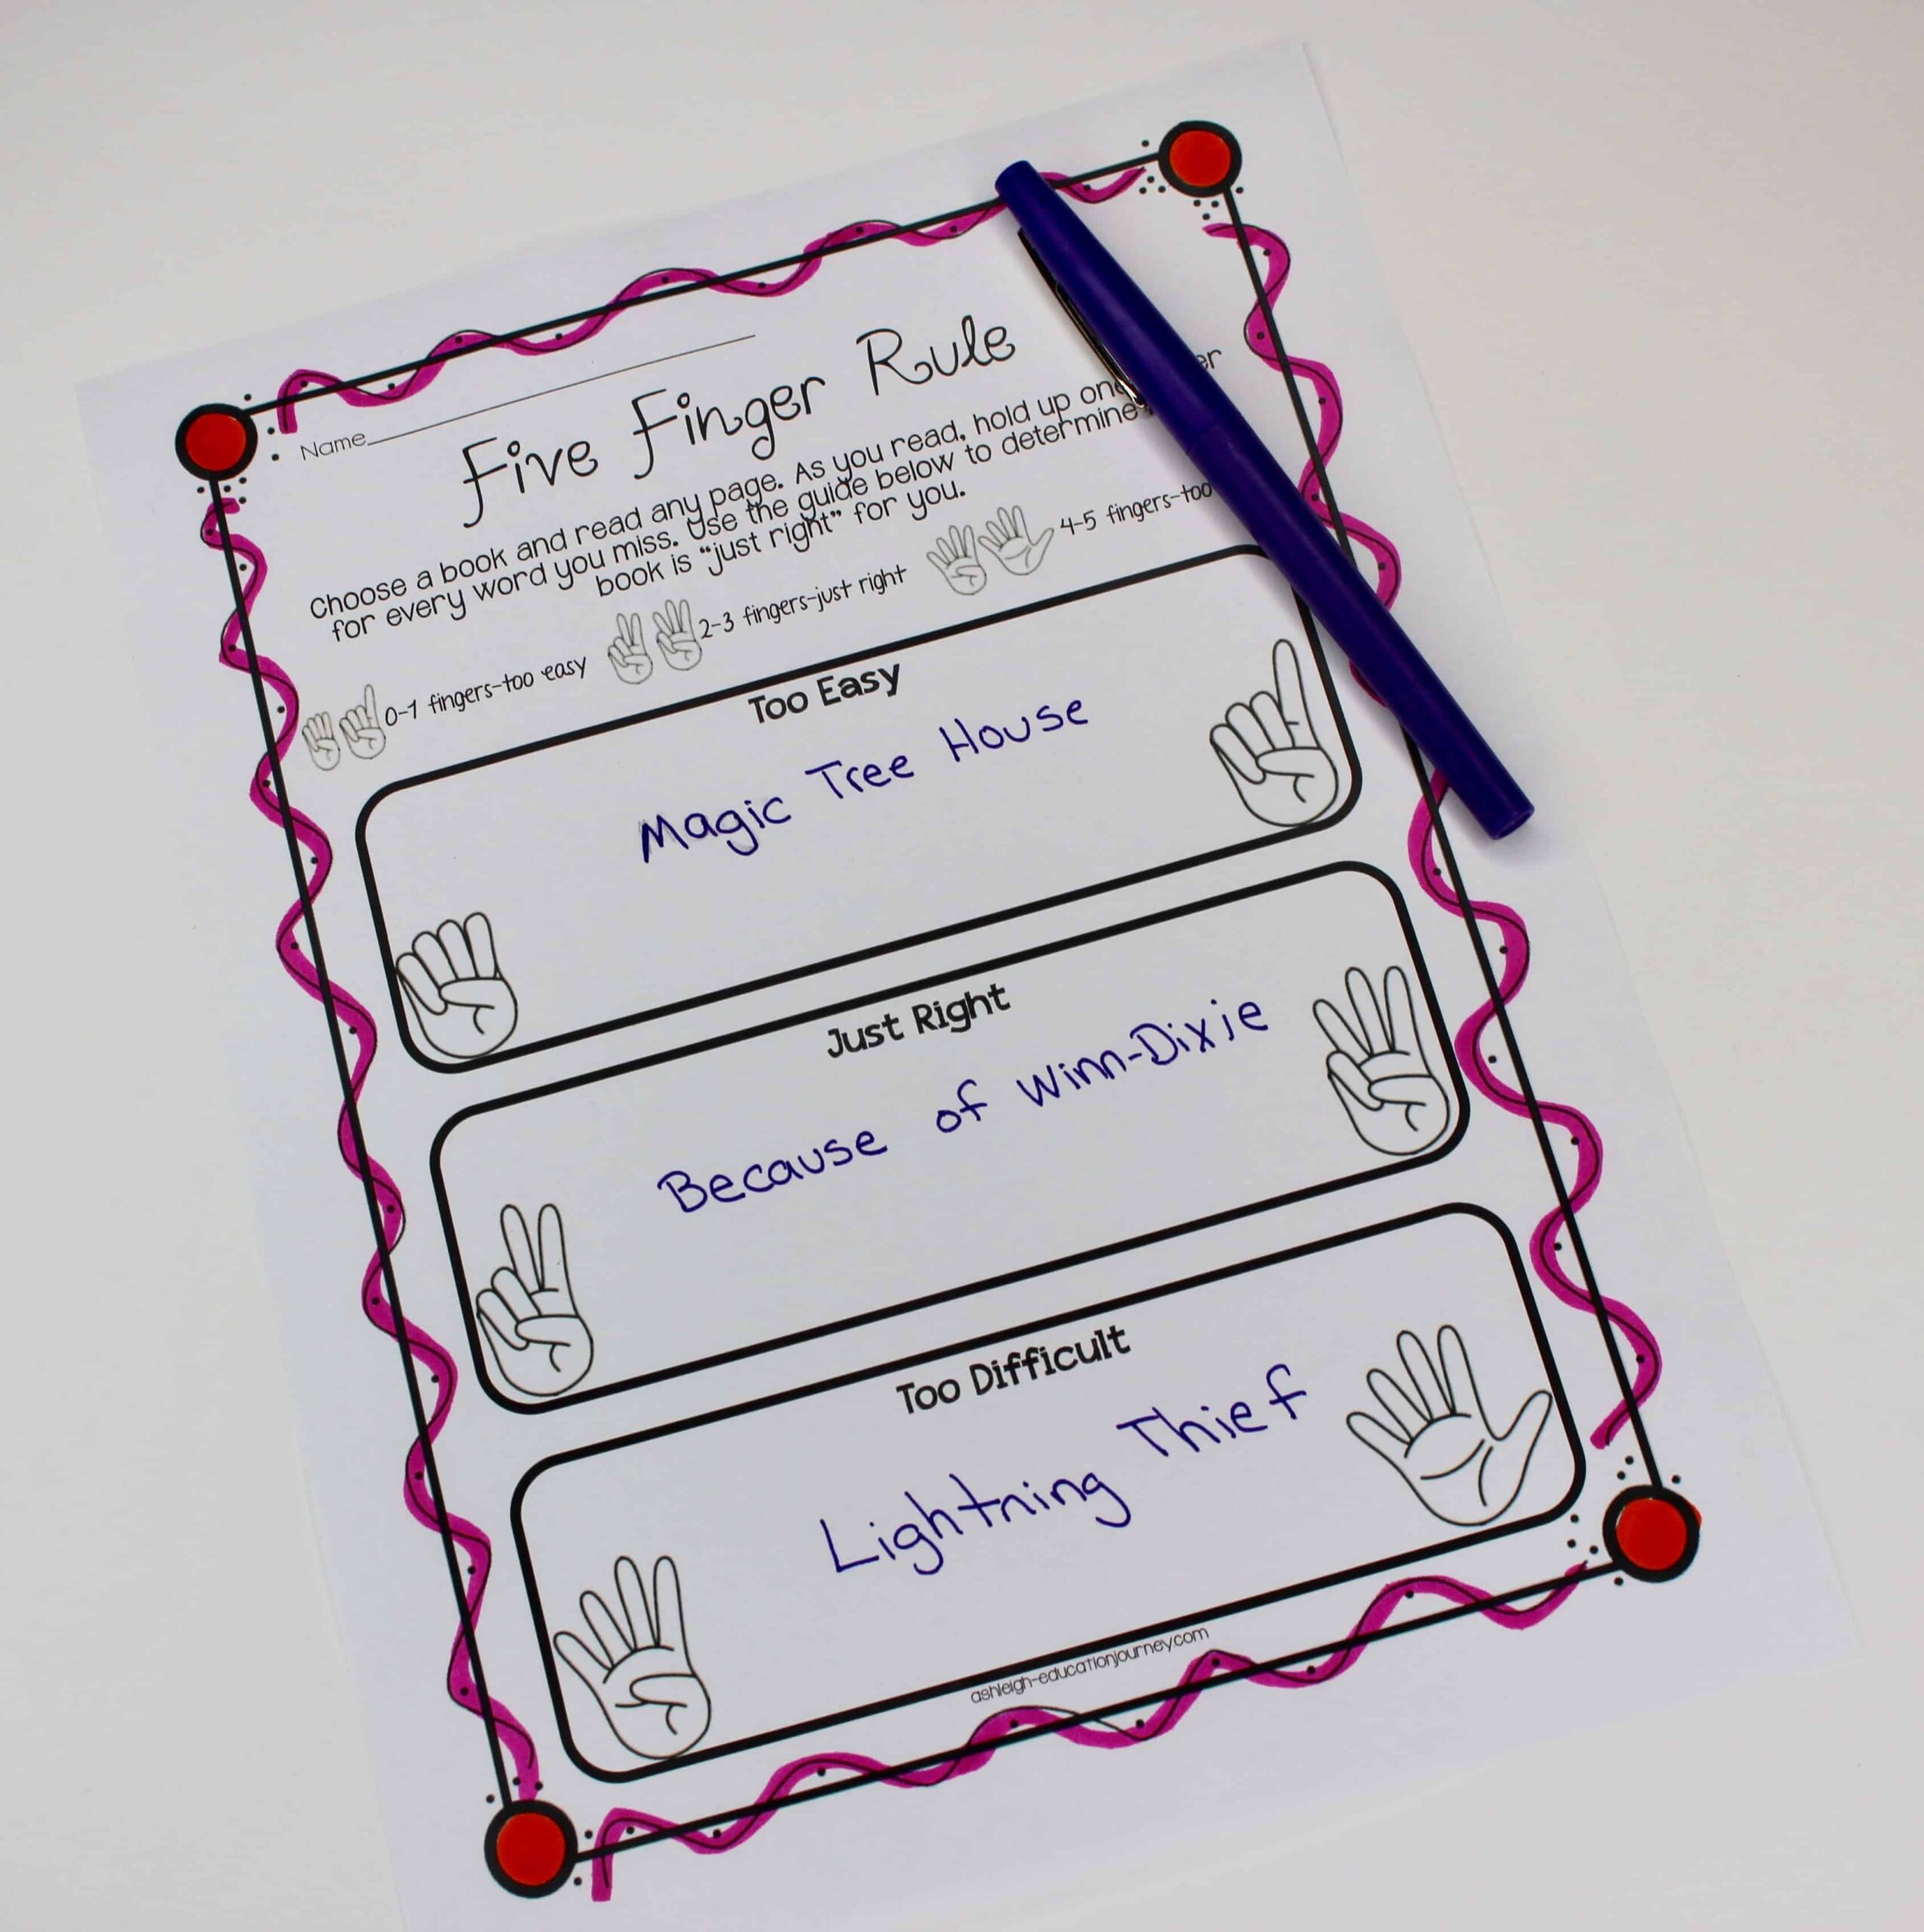 Name
Five Finger Rule
Choose a book and read any page. As you read, hold up one
for every word you miss. Use the guide below to determine
book is "just right" for you.
0-1 fingers-too easy 2-3 fingers-just right 4-5 fingers-too
Too Easy
Magic Tree House
Just Right
Because of Winn-Dixie
Too Difficult
Lightning Thief
ashleigh-educationjourney.com